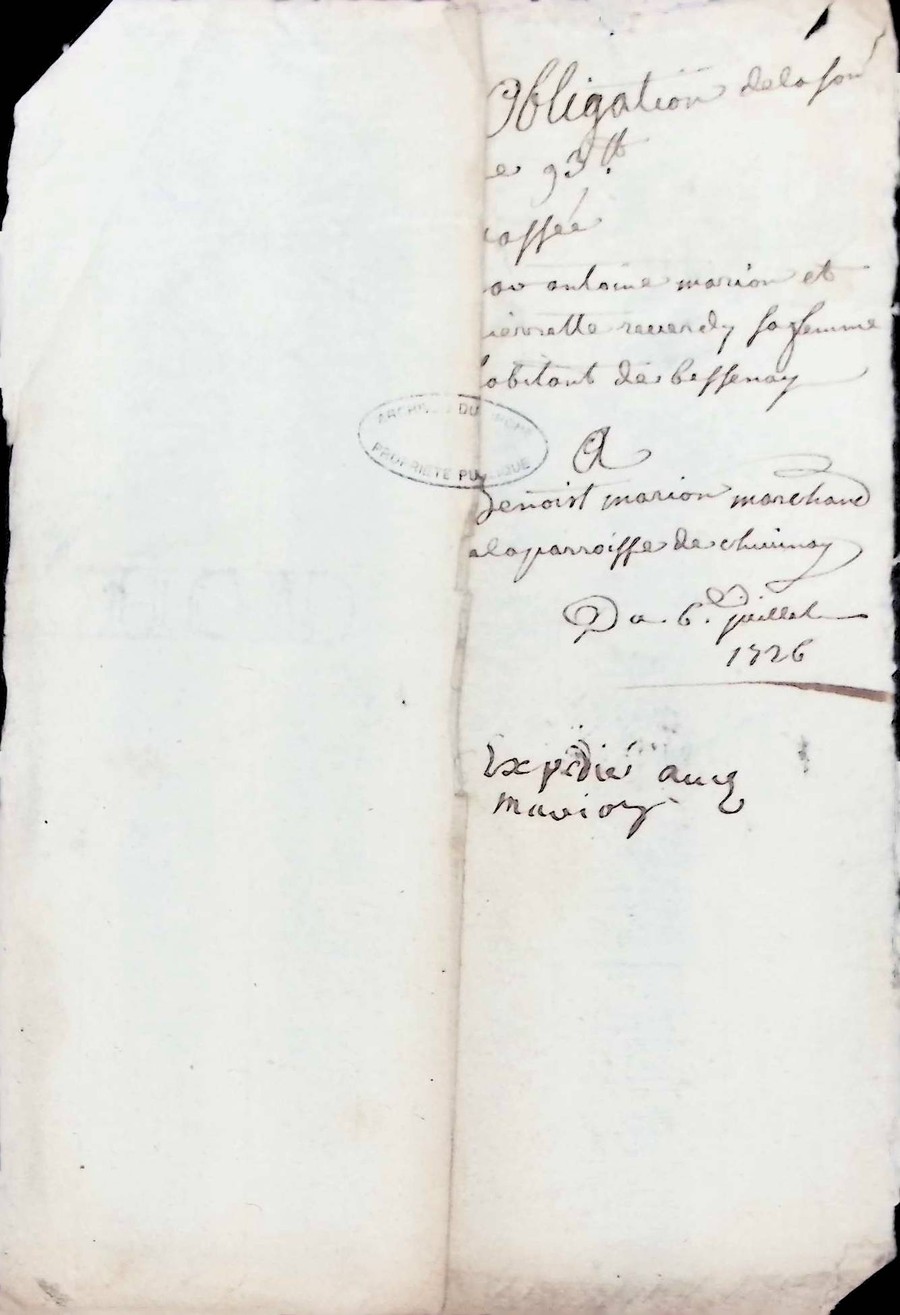 Obligation de la som
e 93 lt.
passée
par antoine marion et
pierrette reverdy sa femme
habitant de bessenay
ARCHIVES DU RHÔNE
PROPRIÉTÉ PUBLIQUE
A
Benoist marion marchand
a la parroisse de chevinay
Du 6. juillet
1726
Expedié aud
marion